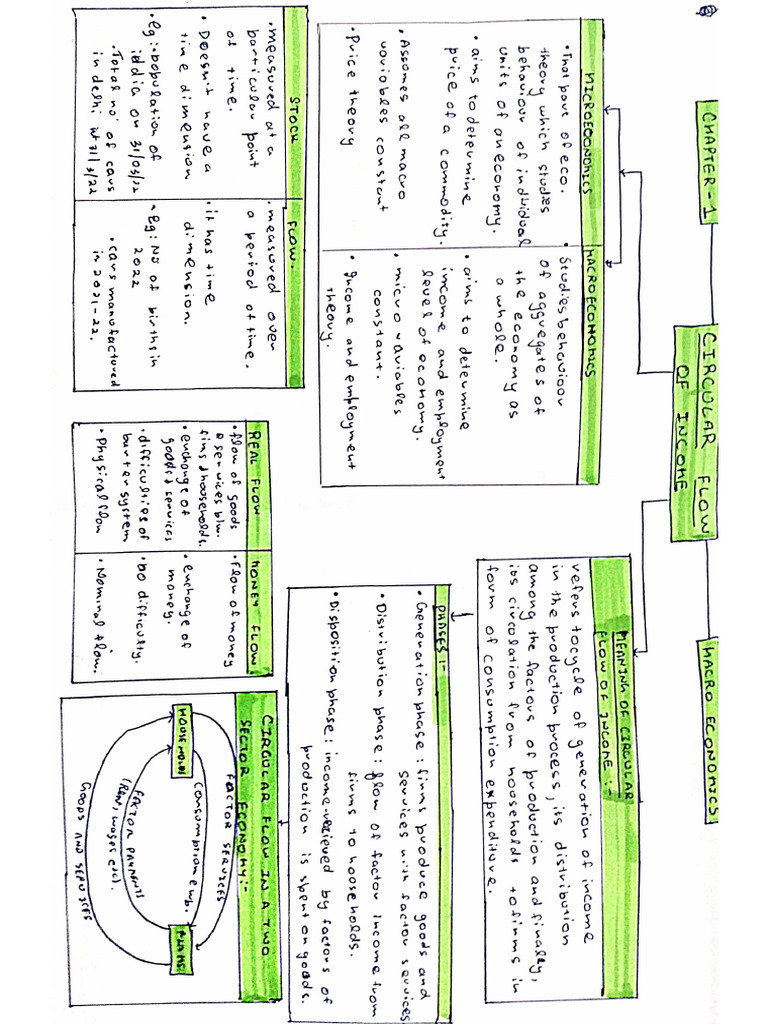 CHAPTER-1
CIRCULAR FLOW
OF INCOME
MACRO ECONOMICS
MICROECONOMICS
• That part of eco.
theory which studies
behaviour of individual
units of an economy.
• aims to determine
price of a commodity.
• Assumes all macro
variables constant
• Price theory
MACROECONOMICS
• Studies behaviour
of aggregates of
the economy as
a whole.
• aims to determine
income and employment
level of economy.
• micro variables
constant.
• Income and employment
theory.
MEANING OF CIRCULAR
FLOW OF INCOME :-
refers to cycle of generation of income
in the production process, its distribution
among the factors of production and finally,
its circulation from households to firms in
form of consumption expenditure.
PHASES :-
• Generation phase : firms produce goods and
services with factor services
• Distribution phase : flow of factor income from
firms to households.
• Disposition phase : income recieved by factors of
production is spent on goods.
STOCK
• measured at a
particular point
of time.
• Doesn't have a
time dimension
• eg:- population of
india on 31/03/22
• Total no. of cars
in delhi at 31/3/22
FLOW.
• measured over
a period of time.
• it has time
dimension.
• eg: No of births in
2022
• cars manufactured
in 2021-22.
REAL FLOW
• flow of goods
& services b/w.
firms & households.
• exchange of
goods & services
• difficulties of
barter system
• Physical flow
MONEY FLOW
• Flow of money
• exchange of
money.
• no difficulty.
• Nominal flow.
CIRCULAR FLOW IN A TWO
SECTOR ECONOMY:-
FACTOR SERVICES
Consumption exp.
HOUSEHOLDS
FIRMS
FACTOR PAYMENTS
(Ren, wages etc).
GOODS AND SERVICES